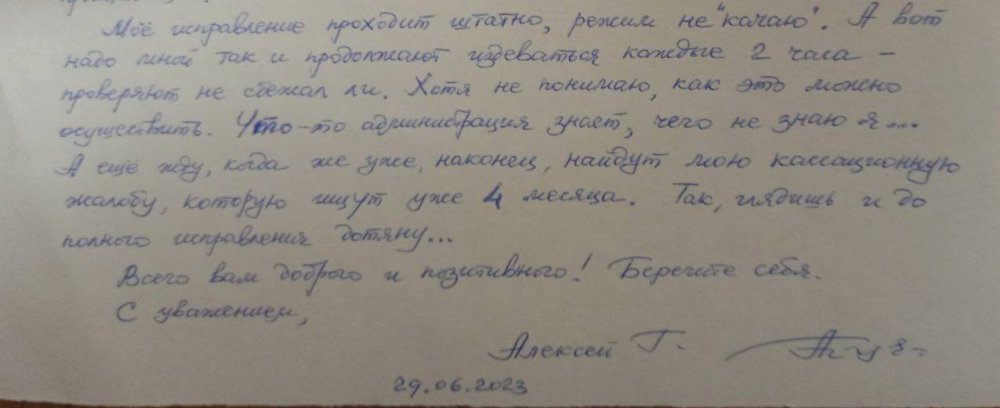 Моё исправление проходит штатно, режим не "качаю". А вот
надо мной так и продолжают издеваться каждые 2 часа –
проверяют не сбежал ли. Хотя не понимаю, как это можно
осуществить. Что-то администрация знает, чего не знаю я...
А ещё жду, когда же уже, наконец, найдут мою кассационную
жалобу, которую ищут уже 4 месяца. Так, глядишь и до
полного исправления дотяну...
Всего вам доброго и позитивного! Берегите себя.
С уважением,
Алексей Г.
29.06.2023